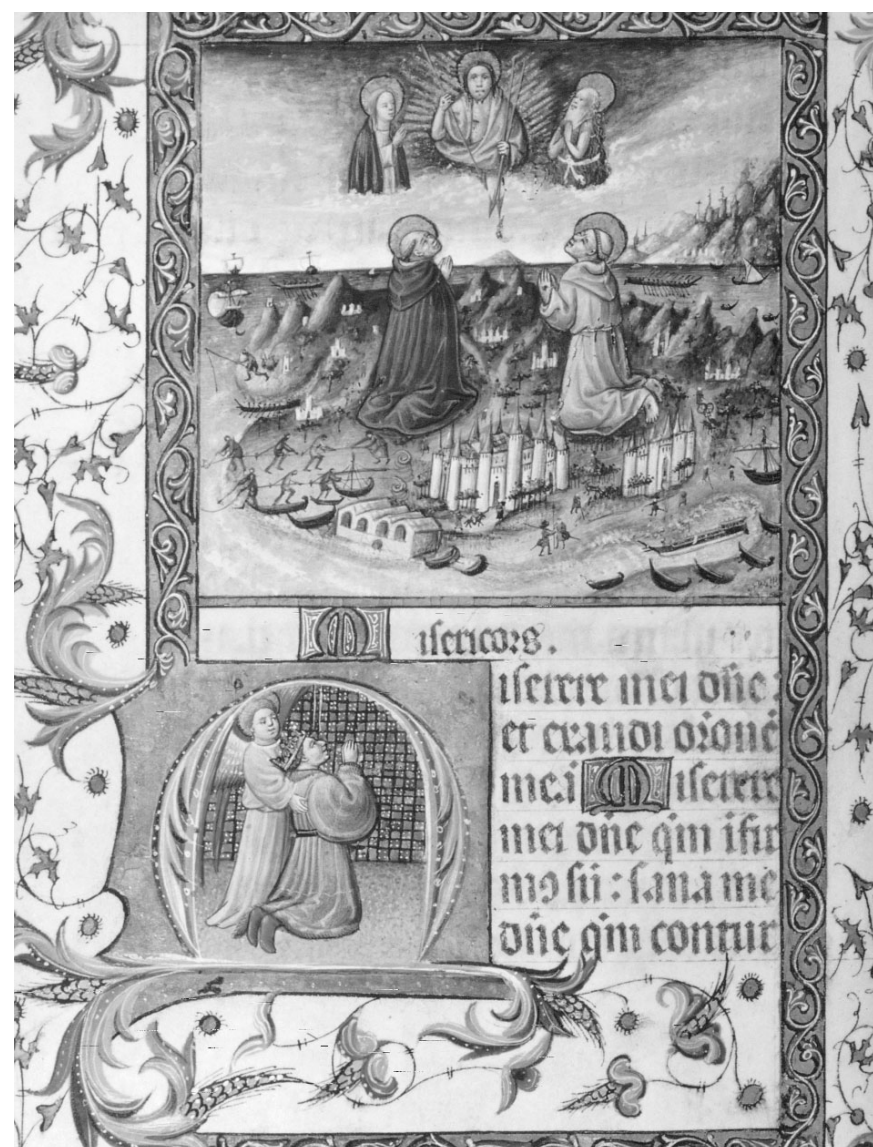 Misericors.
Miserere mei dn̄e :
et exaudi or̄onē
meā Miserere
mei dn̄e qm̄ ifir
mꝯ sū : sana me
dn̄e qm̄ contur